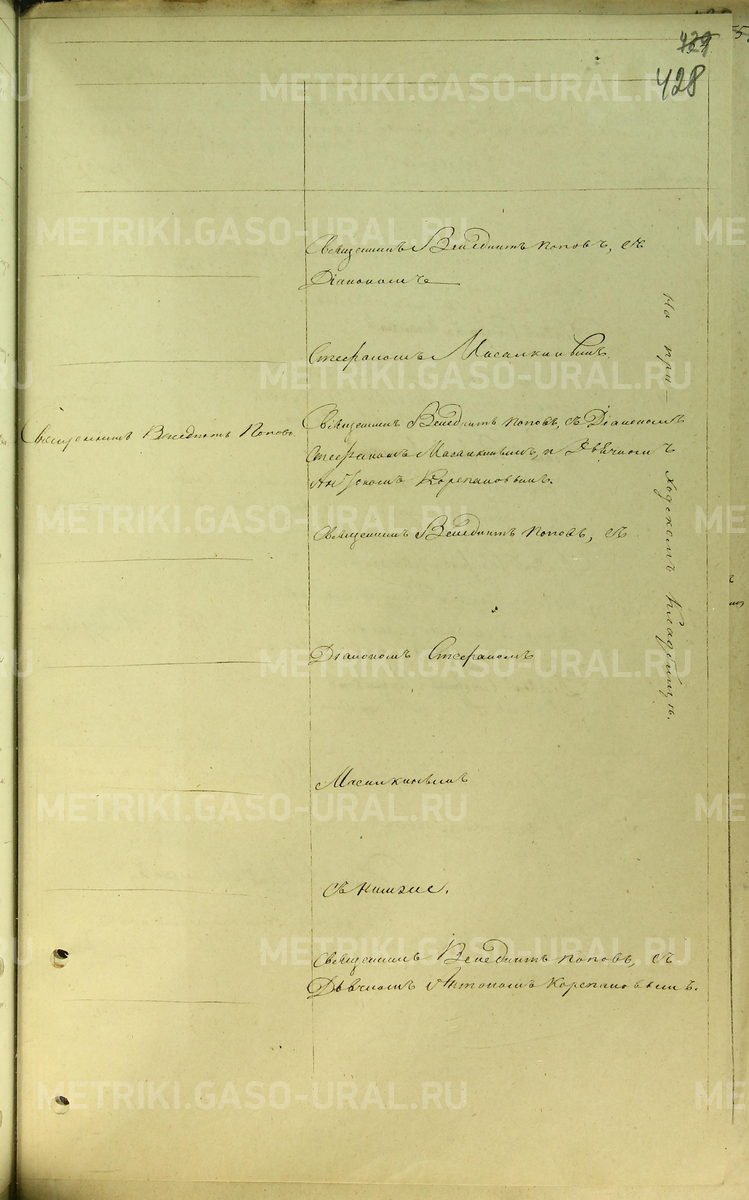 429
428
Священникъ Венедиктъ Поповъ, съ
Діакономъ
Стефаномъ Масалкинымъ.
Священникъ Венедиктъ Поповъ.
Священникъ Венедиктъ Поповъ, съ Діакономъ
Стефаномъ Масалкинымъ, и Дьячкомъ
Антономъ Корепановымъ.
Священникъ Венедиктъ Поповъ, съ
Діакономъ Стефаномъ
Масалкинымъ
съ нимъ же.
Священникъ Венедиктъ Поповъ, съ
Дьячкомъ Антономъ Корепановымъ.
На при-
ходскомъ кладбищѣ.
METRIKI.GASO-URAL.RU